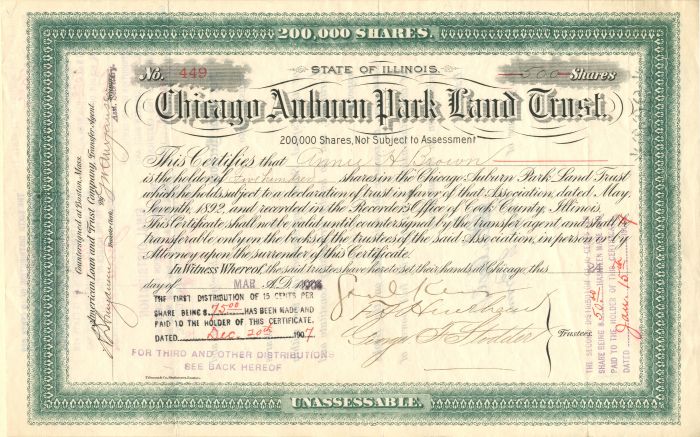 200,000 SHARES.
No. 449
STATE OF ILLINOIS.
500 Shares
Chicago Auburn Park Land Trust.
200,000 Shares, Not Subject to Assessment
This Certifies that Annie H Brown
is the holder of Five hundred shares in the Chicago Auburn Park Land Trust
which he holds subject to a declaration of trust in favor of that Association, dated May
Seventh, 1892, and recorded in the Recorder's Office of Cook County, Illinois.
This Certificate shall not be valid until countersigned by the transfer agent and shall be
transferable only on the books of the trustees of the said Association, in person or by
Attorney upon the surrender of this Certificate.
In Witness Whereof, the said trustees have hereto set their hands at Chicago, this
day of MAR A.D.
THE FIRST DISTRIBUTION OF 15 CENTS PER
SHARE BEING $ 75.00 HAS BEEN MADE AND
PAID TO THE HOLDER OF THIS CERTIFICATE.
DATED Dec. 20th 1907
FOR THIRD AND OTHER DISTRIBUTIONS
SEE BACK HEREOF
Trustees
UNASSESSABLE.
Countersigned at Boston, Mass.
American Loan and Trust Company, Transfer Agent.
THE SECOND DISTRIBUTION OF
SHARE BEING $ 50.00 HAS BEEN MADE
PAID TO THE HOLDER OF THIS CERTIFICATE
DATED Jan. 15th